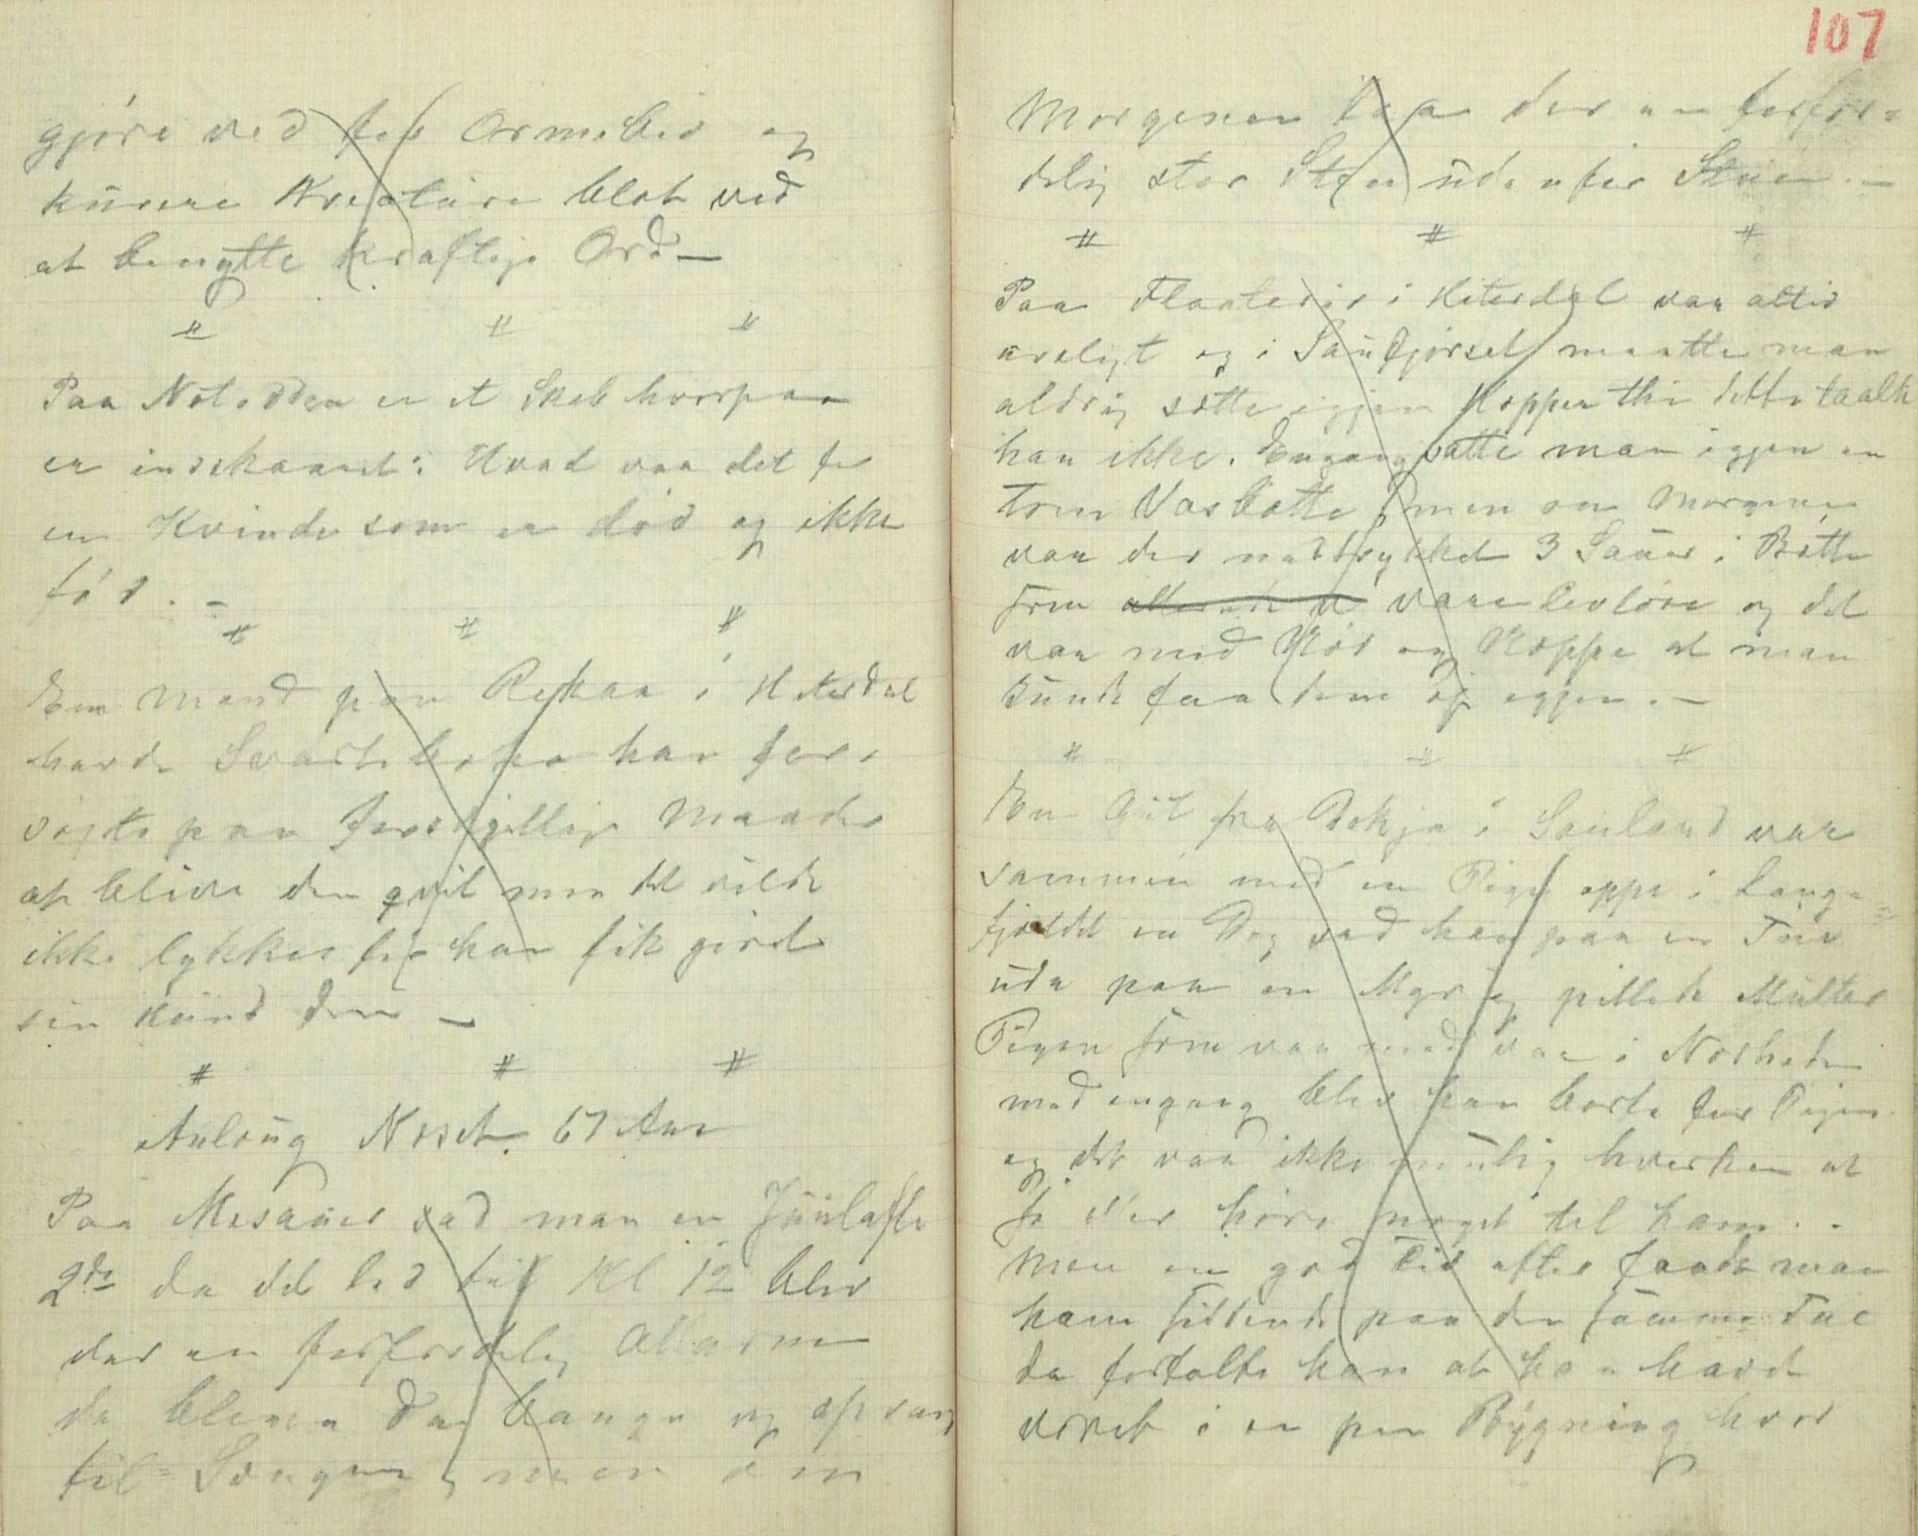 gjöre ved för Ormebid og
kurere Kreature blot ved
at benytte kraftige Ord —
〃 〃 〃
Paa Notodden er et Skab hvorpaa
er indskaaret: Hvad var det for
en Kvinde som er död og ikke
föd. –
〃 〃 〃
En Mand paa Rekaa i Hiterdal
havde Svarteboka han for-
søgte paa forskjellige Maader
at blive den qvit men det vilde
ikke lykkes før han fik givet
sin Hund den —
〃 〃 〃
Aaloug Noset. 67 Aar
Paa Mesaner sad man en Juulaften
2de da det led til Kl 12 blev
der en forfærdelig Allarm
da bleven Dag bange og sprang
til Sengen, men om
107
Morgenen laa der en forfær-
delig stor Sten udenfor Stuen. —
〃 〃 〃
Paa Flaaterud i Hiterdal var altid
ureligt og i Saufjöset maatte man
aldrig sætte igjen Kopper thi dette taalte
han ikke. Engang satte man igjen en
tom Vasbötte, men om Morgenen
var der nedtrykket 3 Sauer i Bötte
som allerede v vare livlöse og det
var med Nöd og Neppe at man
kunde faa dem op igjen. —
〃 〃 〃
En Gut fra Bokja i Sauland var
sammen med en Pige oppe i Lange-
fjeldet en Dag sad han paa en Tue
ude paa en Myr og pillede Multer
Pigen som var med var i Nærheden
med engang blev han borte for Pigen
og det var ikke mulig hverken at
se eller höre noget til ham. -
Men en god Tid efter fandt man
ham siddende paa den samme Tue
da fortalte han at han havde
været i en pen Bygning hvor